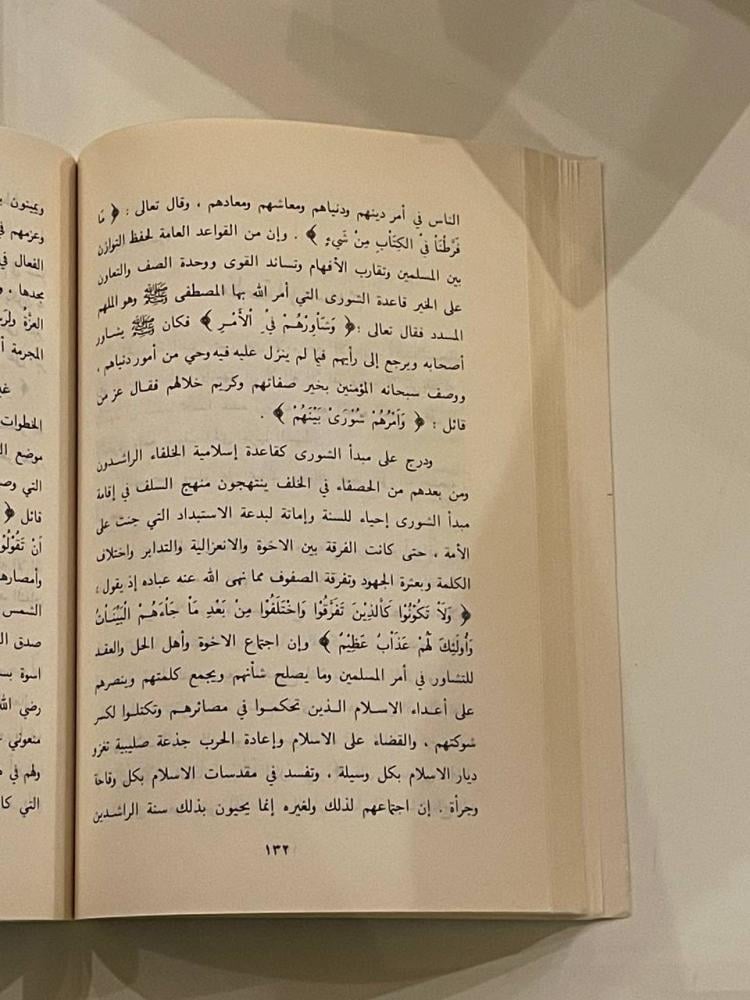 الناس في أمر دينهم ودنياهم ومعاشهم ومعادهم ، وقال تعالى : ﴿ مَا
فَرَّطْنَا فِي الكِتَابِ مِنْ شَيْءٍ ﴾ . وإن من القواعد العامة لحفظ التوازن
بين المسلمين وتقارب الأفهام وتساند القوى ووحدة الصف والتعاون
على الخير قاعدة الشورى التي أمر الله بها المصطفى ﷺ وهو الملهم
المسدد فقال تعالى : ﴿ وَشَاوِرْهُمْ فِي الْأَمْرِ ﴾ فكان ﷺ يشاور
أصحابه ويرجع إلى رأيهم فيما لم ينزل عليه فيه وحي من أمور دنياهم ،
ووصف سبحانه المؤمنين بخير صفاتهم وكريم خلالهم فقال عز من
قائل : ﴿ وَأَمْرُهُمْ شُوْرَىْ بَيْنَهُمْ ﴾ .
ودرج على مبدأ الشورى كقاعدة إسلامية الخلفاء الراشدون
ومن بعدهم من الحصفاء في الخلف ينتهجون منهج السلف في إقامة
مبدأ الشورى إحياء للسنة وإماتة لبدعة الاستبداد التي جنت على
الأمة ، حتى كانت الفرقة بين الاخوة والانعزالية والتدابر واختلاف
الكلمة وبعثرة الجهود وتفرقة الصفوف مما نهى الله عنه عباده إذ يقول :
﴿ وَلَاْ تَكُوْنُوْا كَالَّذِيْنَ تَفَرَّقُوْا وَاخْتَلَفُوْا مِنْ بَعْدِ مَاْ جَاْءَهُمْ الْبَيِّنَاْتُ
وَأُوْلَئِكَ لَهُمْ عَذَاْبٌ عَظِيْمٌ ﴾ وإن اجتماع الاخوة وأهل الحل والعقد
للتشاور في أمر المسلمين وما يصلح شأنهم ويجمع كلمتهم وينصرهم
على أعداء الاسلام الذين تحكموا في مصائرهم وتكتلوا لكسر
شوكتهم ، والقضاء على الاسلام وإعادة الحرب جذعة صليبية تغزو
ديار الاسلام بكل وسيلة ، وتفسد في مقدسات الاسلام بكل وقاحة
وجرأة . إن اجتماعهم لذلك ولغيره إنما يحيون بذلك سنة الراشدين
١٣٢
ويميتون
وعزمهم في
الفعال في
بجدها ، و
المجرمة أ
الخطوات
موضع ال
التي وص
قائل ﴿
أَنْ تَقُوْلُوْ
وأمصارها
الشمس
صدق ال
اسوة بس
رضي الله
ولهم في
التي كا